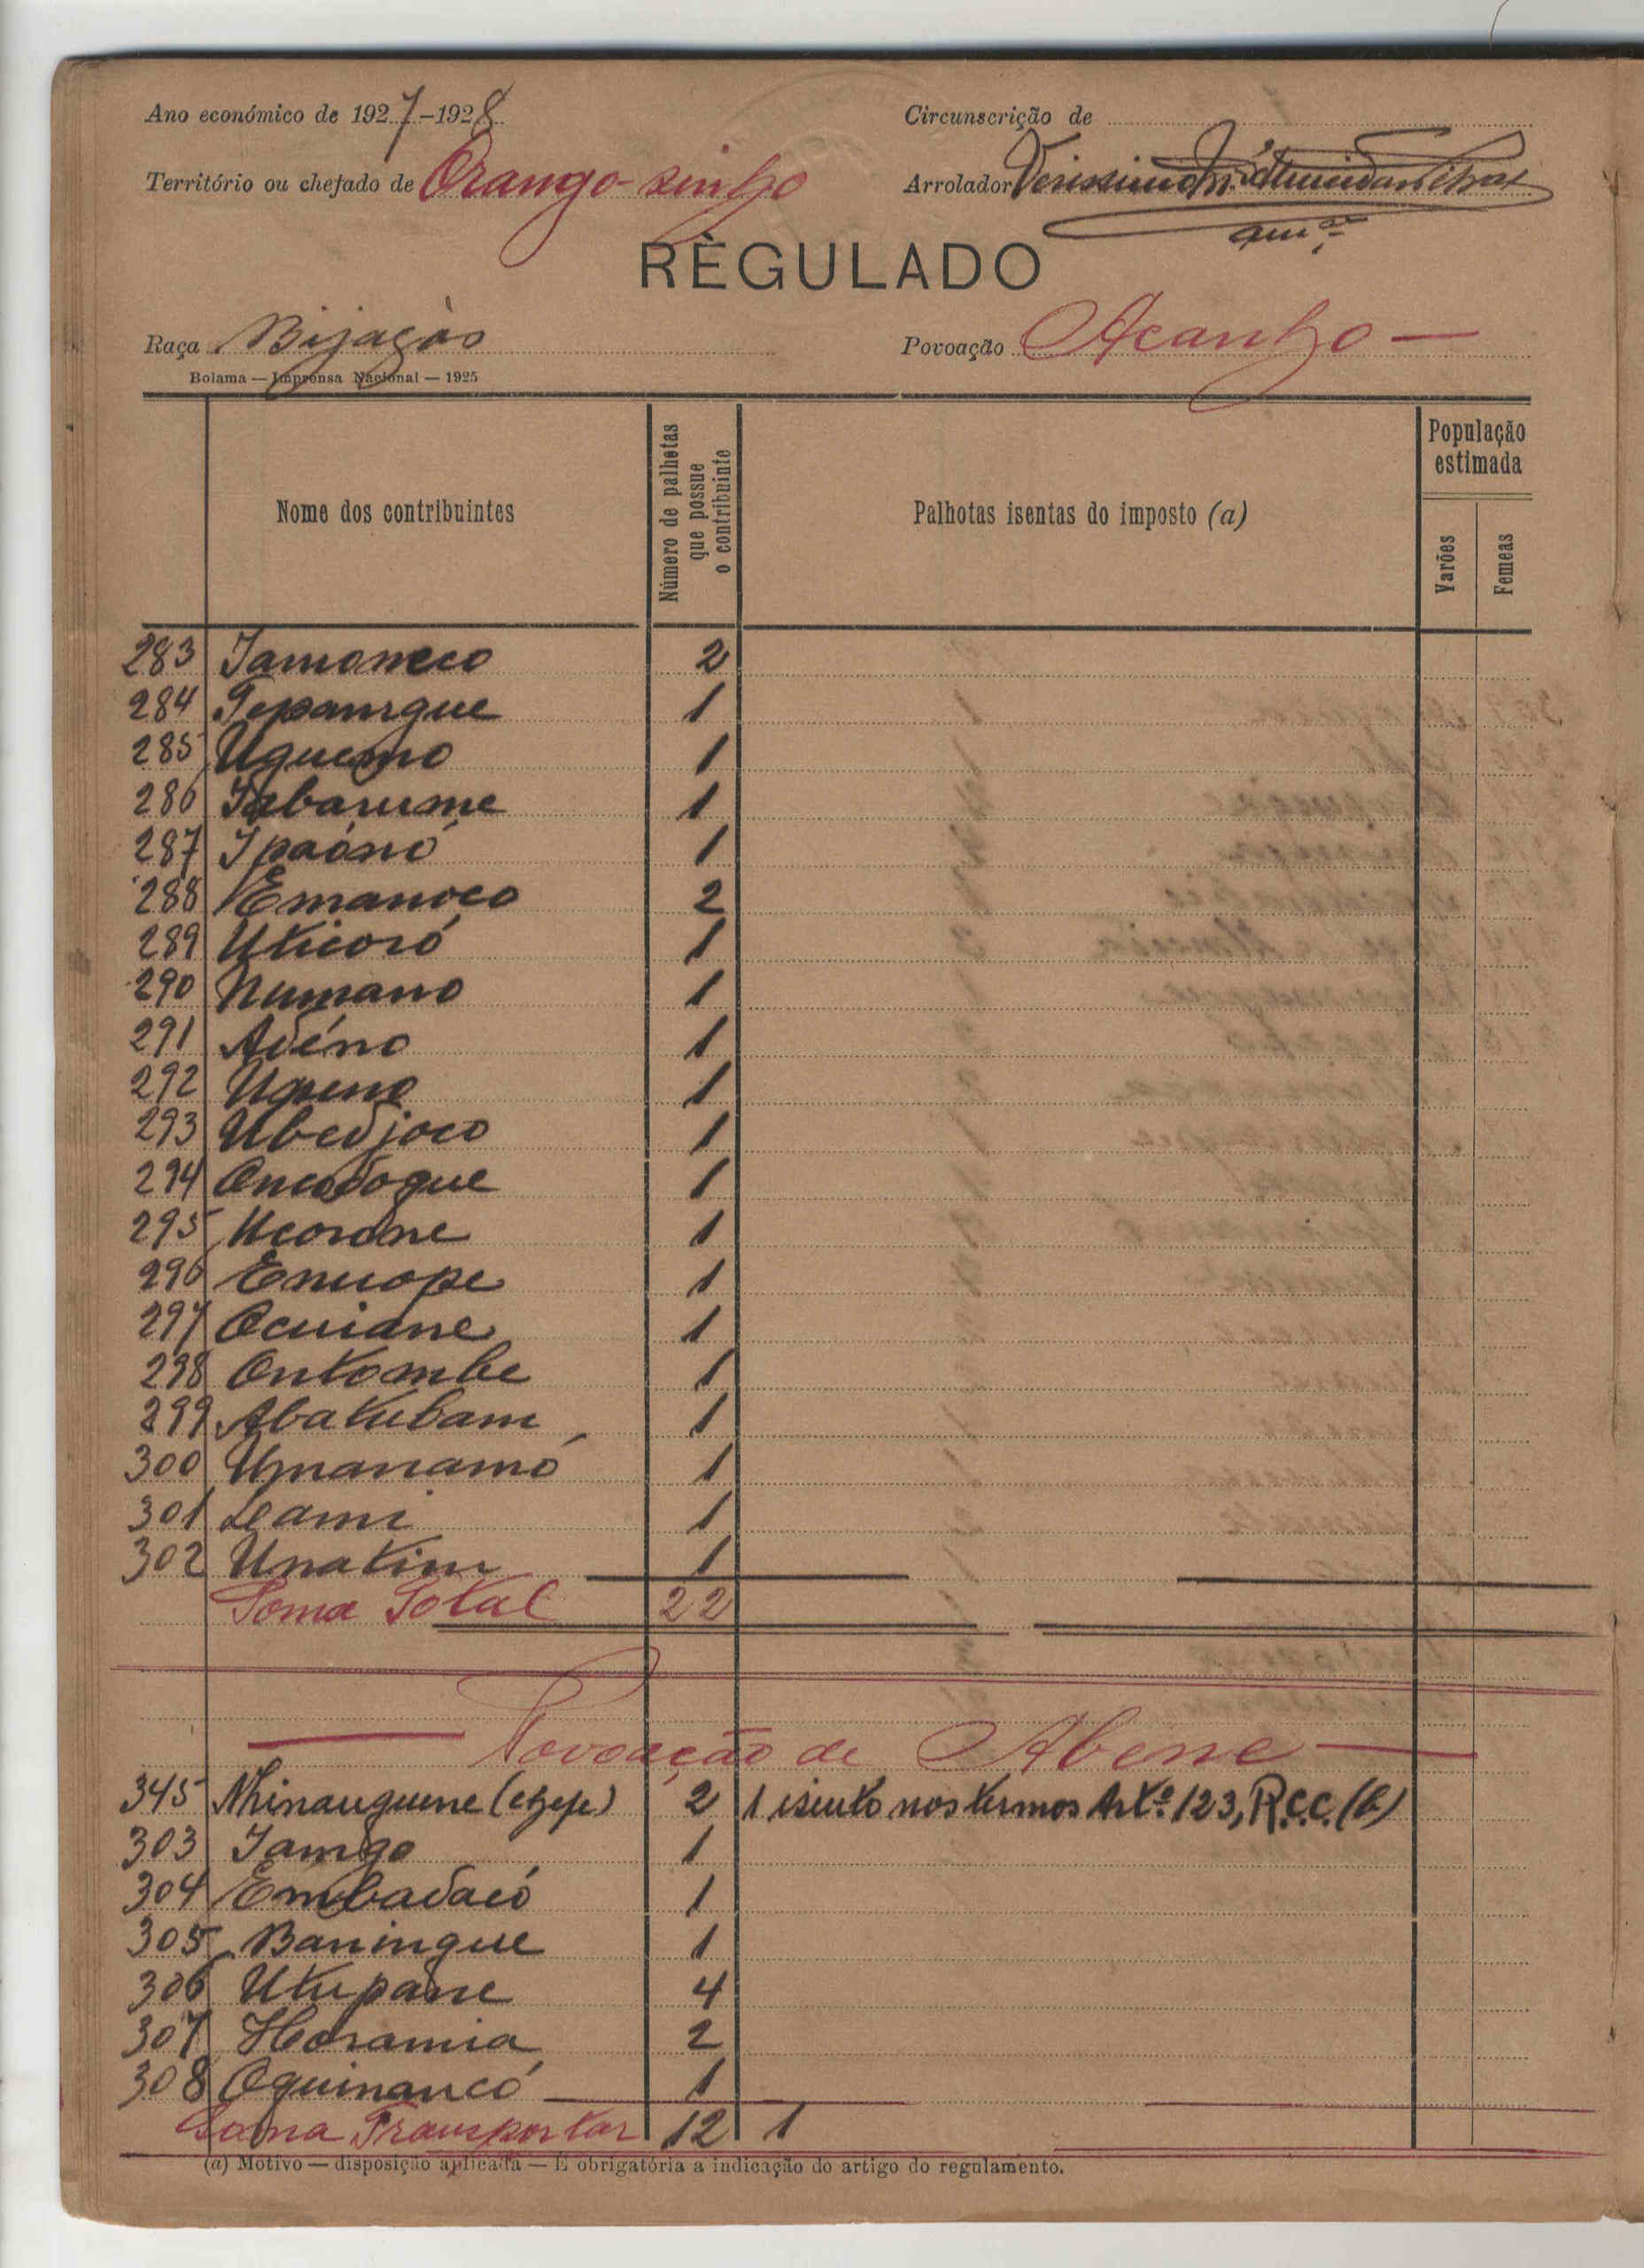 Ano económico de 1927-1928
Circunscrição de
Território ou chefado de Orango-
Arrolador Verissimo
RÈGULADO
Raça Bijagòs
Povoação Acanho
Bolama — Imprensa Nacional — 1925
Nome dos contribuintes
Número de palhetas que possue o contribuinte
Palhotas isentas do imposto (a)
População estimada
Varões
Femeas
283 Iamoneco 2
284 1
285 Uguemo 1
286 1
287 Ipaónó 1
288 Emanoco 2
289 Uticoró 1
290 Numano 1
291 Adéno 1
292 1
293 Ubedjoco 1
294 1
295 Ucorone 1
296 Enuope 1
297 Ocuiane 1
298 Ontombe 1
299 Abatubam 1
300 Umanamó 1
301 1
302 Unatim 1
Soma Total 22
Povoação de Abene
345 2 1 isento nos termos Artº 123, R.C.C. (b)
303 1
304 Embadacó 1
305 Baningue 1
306 Utupane 4
307 2
308 Oquinancó 1
Soma Transportar 12 1
(a) Motivo — disposição aplicada — É obrigatória a indicação do artigo do regulamento.